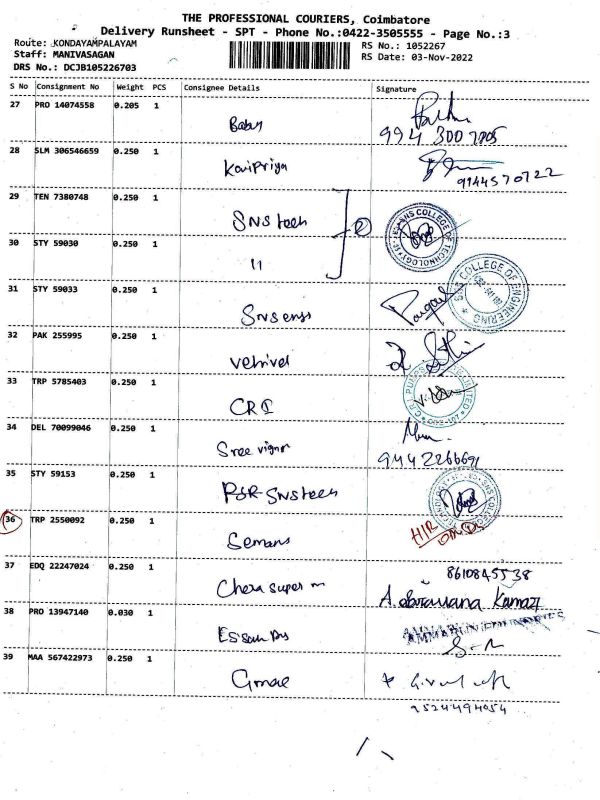 THE PROFESSIONAL COURIERS, Coimbatore
Delivery Runsheet - SPT - Phone No.:0422-3505555 - Page No.:3
Route: KONDAYAMPALAYAM
Staff: MANIVASAGAN
DRS No.: DCJB105226703
RS No.: 1052267
RS Date: 03-Nov-2022
S No Consignment No Weight PCS Consignee Details Signature
27 PRO 14074558 0.205 1
Baby
994 300 7705
28 SLM 306546659 0.250 1
Kavipriya
9144570722
29 TEN 7380748 0.250 1
SNS tech
②
SNS COLLEGE OF TECHNOLOGY
30 STY 59030 0.250 1
11
31 STY 59033 0.250 1
SNS engg
SNS COLLEGE OF ENGINEERING
32 PAK 255995 0.250 1
Vetrivel
33 TRP 5785403 0.250 1
CRI
34 DEL 70099046 0.250 1
Sree vignor
9442266691
35 STY 59153 0.250 1
PSR SNS tech
36 TRP 2550092 0.250 1
Semans
H/R
37 EDQ 22247024 0.250 1
Chera super m
8610845538
A. Saravana Kumar
38 PRO 13947140 0.030 1
Essan
39 MAA 567422973 0.250 1
Gmae
9524494054